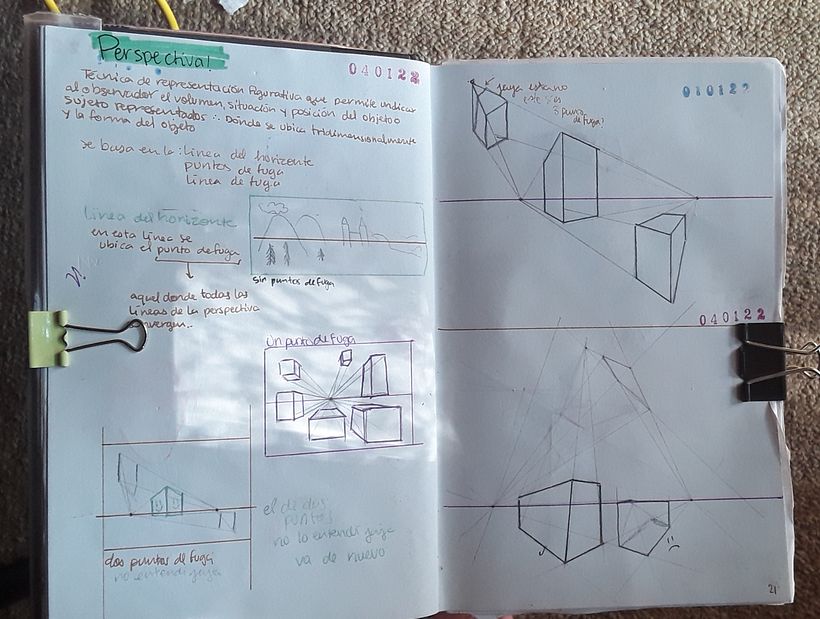 Perspectiva!
040122
Técnica de representación figurativa que permite indicar
al observador el volumen, situación y posición del objeto o
sujeto representados ∴ Dónde se ubica tridimensionalmente
y la forma del objeto
se basa en la: linea del horizonte
puntos de fuga
linea de fuga
Linea del horizonte
en esta linea se
ubica el punto de fuga
sin puntos de fuga
aquel donde todas las
lineas de la perspectiva
convergen..
un punto de fuga
el de dos
puntos
no lo entendí jaja
va de nuevo
dos puntos de fuga
no entendí jaja
jaja
este
3 puntos
de fuga?
010122
040122
21